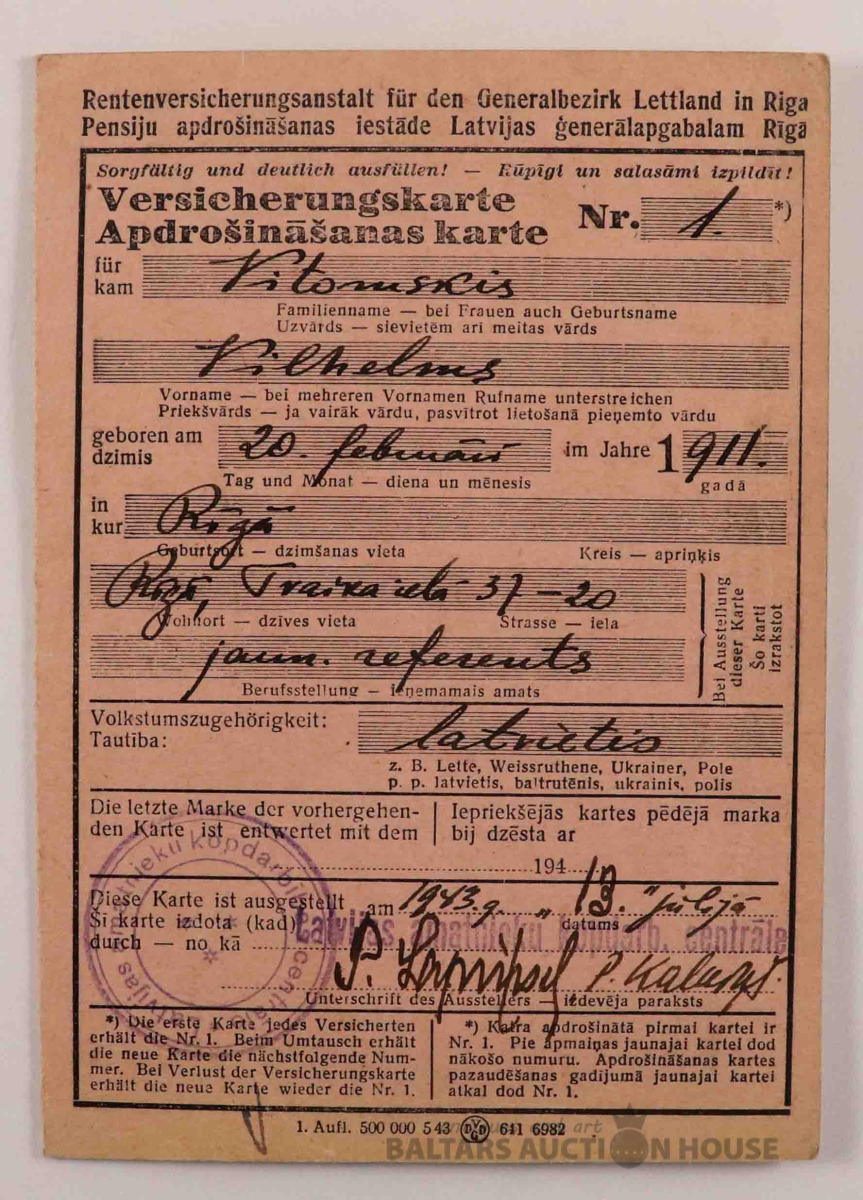 Rentenversicherungsanstalt für den Generalbezirk Lettland in Riga
Pensiju apdrošināšanas iestāde Latvijas ģenerālapgabalam Rīgā
Sorgfältig und deutlich ausfüllen! — Rūpīgi un salasāmi izpildīt!
Versicherungskarte
Apdrošināšanas karte
Nr. 1. *)
für
kam
Vitomskis
Familienname — bei Frauen auch Geburtsname
Uzvārds — sievietēm arī meitas vārds
Vilhelms
Vorname — bei mehreren Vornamen Rufname unterstreichen
Priekšvārds — ja vairāk vārdu, pasvītrot lietošanā pieņemto vārdu
geboren am
dzimis
20. februārī im Jahre 1911.
Tag und Monat — diena un mēnesis gadā
in
kur
Rīgā
Geburtsort — dzimšanas vieta Kreis — apriņķis
Rīgā, Traika ielā 37-20
Wohnort — dzīves vieta Strasse — iela
jaun. referents
Berufsstellung — ieņemamais amats
Bei Ausstellung
dieser Karte
Šo karti
izrakstot
Volkstumszugehörigkeit:
Tautība:
latvietis
z. B. Lette, Weissruthene, Ukrainer, Pole
p. p. latvietis, baltrutēnis, ukrainis, polis
Die letzte Marke der vorhergehen-
den Karte ist entwertet mit dem
Iepriekšējās kartes pēdējā marka
bij dzēsta ar
194
Diese Karte ist ausgestellt am 1943.g. „ 13. " jūlijā
Šī karte izdota (kad) datums
durch — no kā
Latvijas amatnieku kopdarb. centrāle
Latvijas amatnieku kopdarbības centrāle
Unterschrift des Ausstellers — izdevēja paraksts
*) Die erste Karte jedes Versicherten
erhält die Nr. 1. Beim Umtausch erhält
die neue Karte die nächstfolgende Num-
mer. Bei Verlust der Versicherungskarte
erhält die neue Karte wieder die Nr. 1.
*) Katra apdrošinātā pirmai kartei ir
Nr. 1. Pie apmaiņas jaunajai kartei dod
nākošo numuru. Apdrošināšanas kartes
pazaudēšanas gadījumā jaunajai kartei
atkal dod Nr. 1.
1. Aufl. 500 000 5 43 641 6982
art
BALTARS AUCTION HOUSE